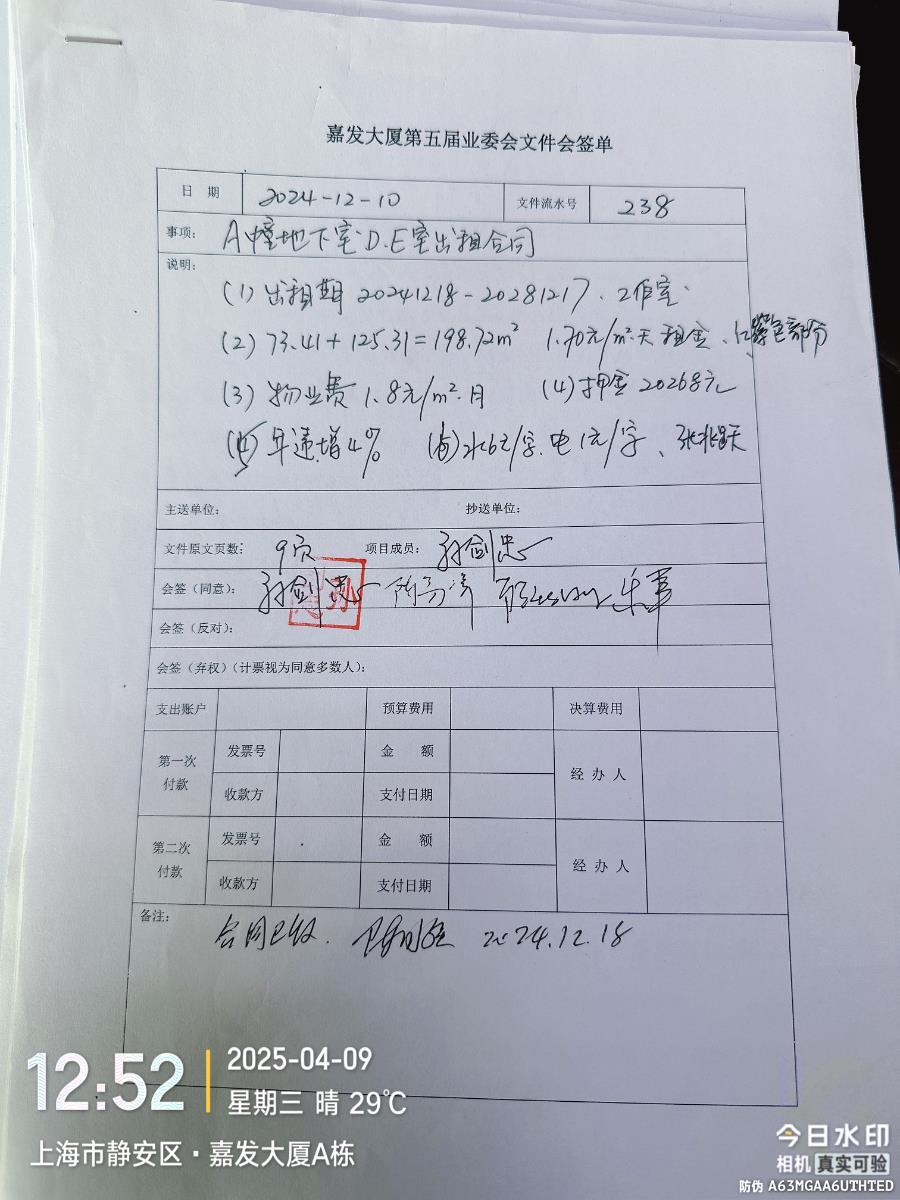 嘉发大厦第五届业委会文件会签单
日 期 2024-12-10 文件流水号 238
事项: A幢地下室D.E室出租合同
说明:
(1) 出租期 20241218-20281217、工作室.
(2) 73.41+125.31=198.72m² 1.70元/m².天 租金、
(3) 物业费 1.8元/m².月 (4) 押金 20268元
年递增4% 水6元/字、电1元/字、张兆跃
主送单位: 抄送单位:
文件原文页数: 9页 项目成员: 孙剑忠
会签(同意): 孙剑忠
会签(反对):
会签(弃权)(计票视为同意多数人):
支出账户 预算费用 决算费用
第一次付款 发票号 金 额 经 办 人
收款方 支付日期
第二次付款 发票号 金 额 经 办 人
收款方 支付日期
备注:
合同已收. 2024.12.18
12:52 2025-04-09
星期三 晴 29℃
上海市静安区·嘉发大厦A栋
今日水印
相机 真实可验
防伪 A63MGAA6UTHTED